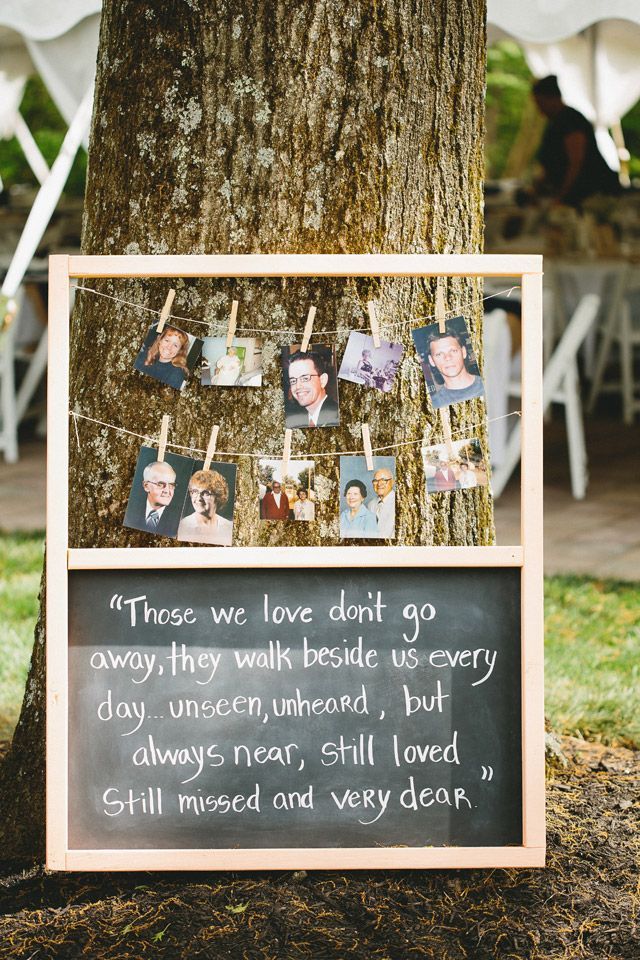 "Those we love don't go
away, they walk beside us every
day... unseen, unheard, but
always near, still loved
still missed and very dear."